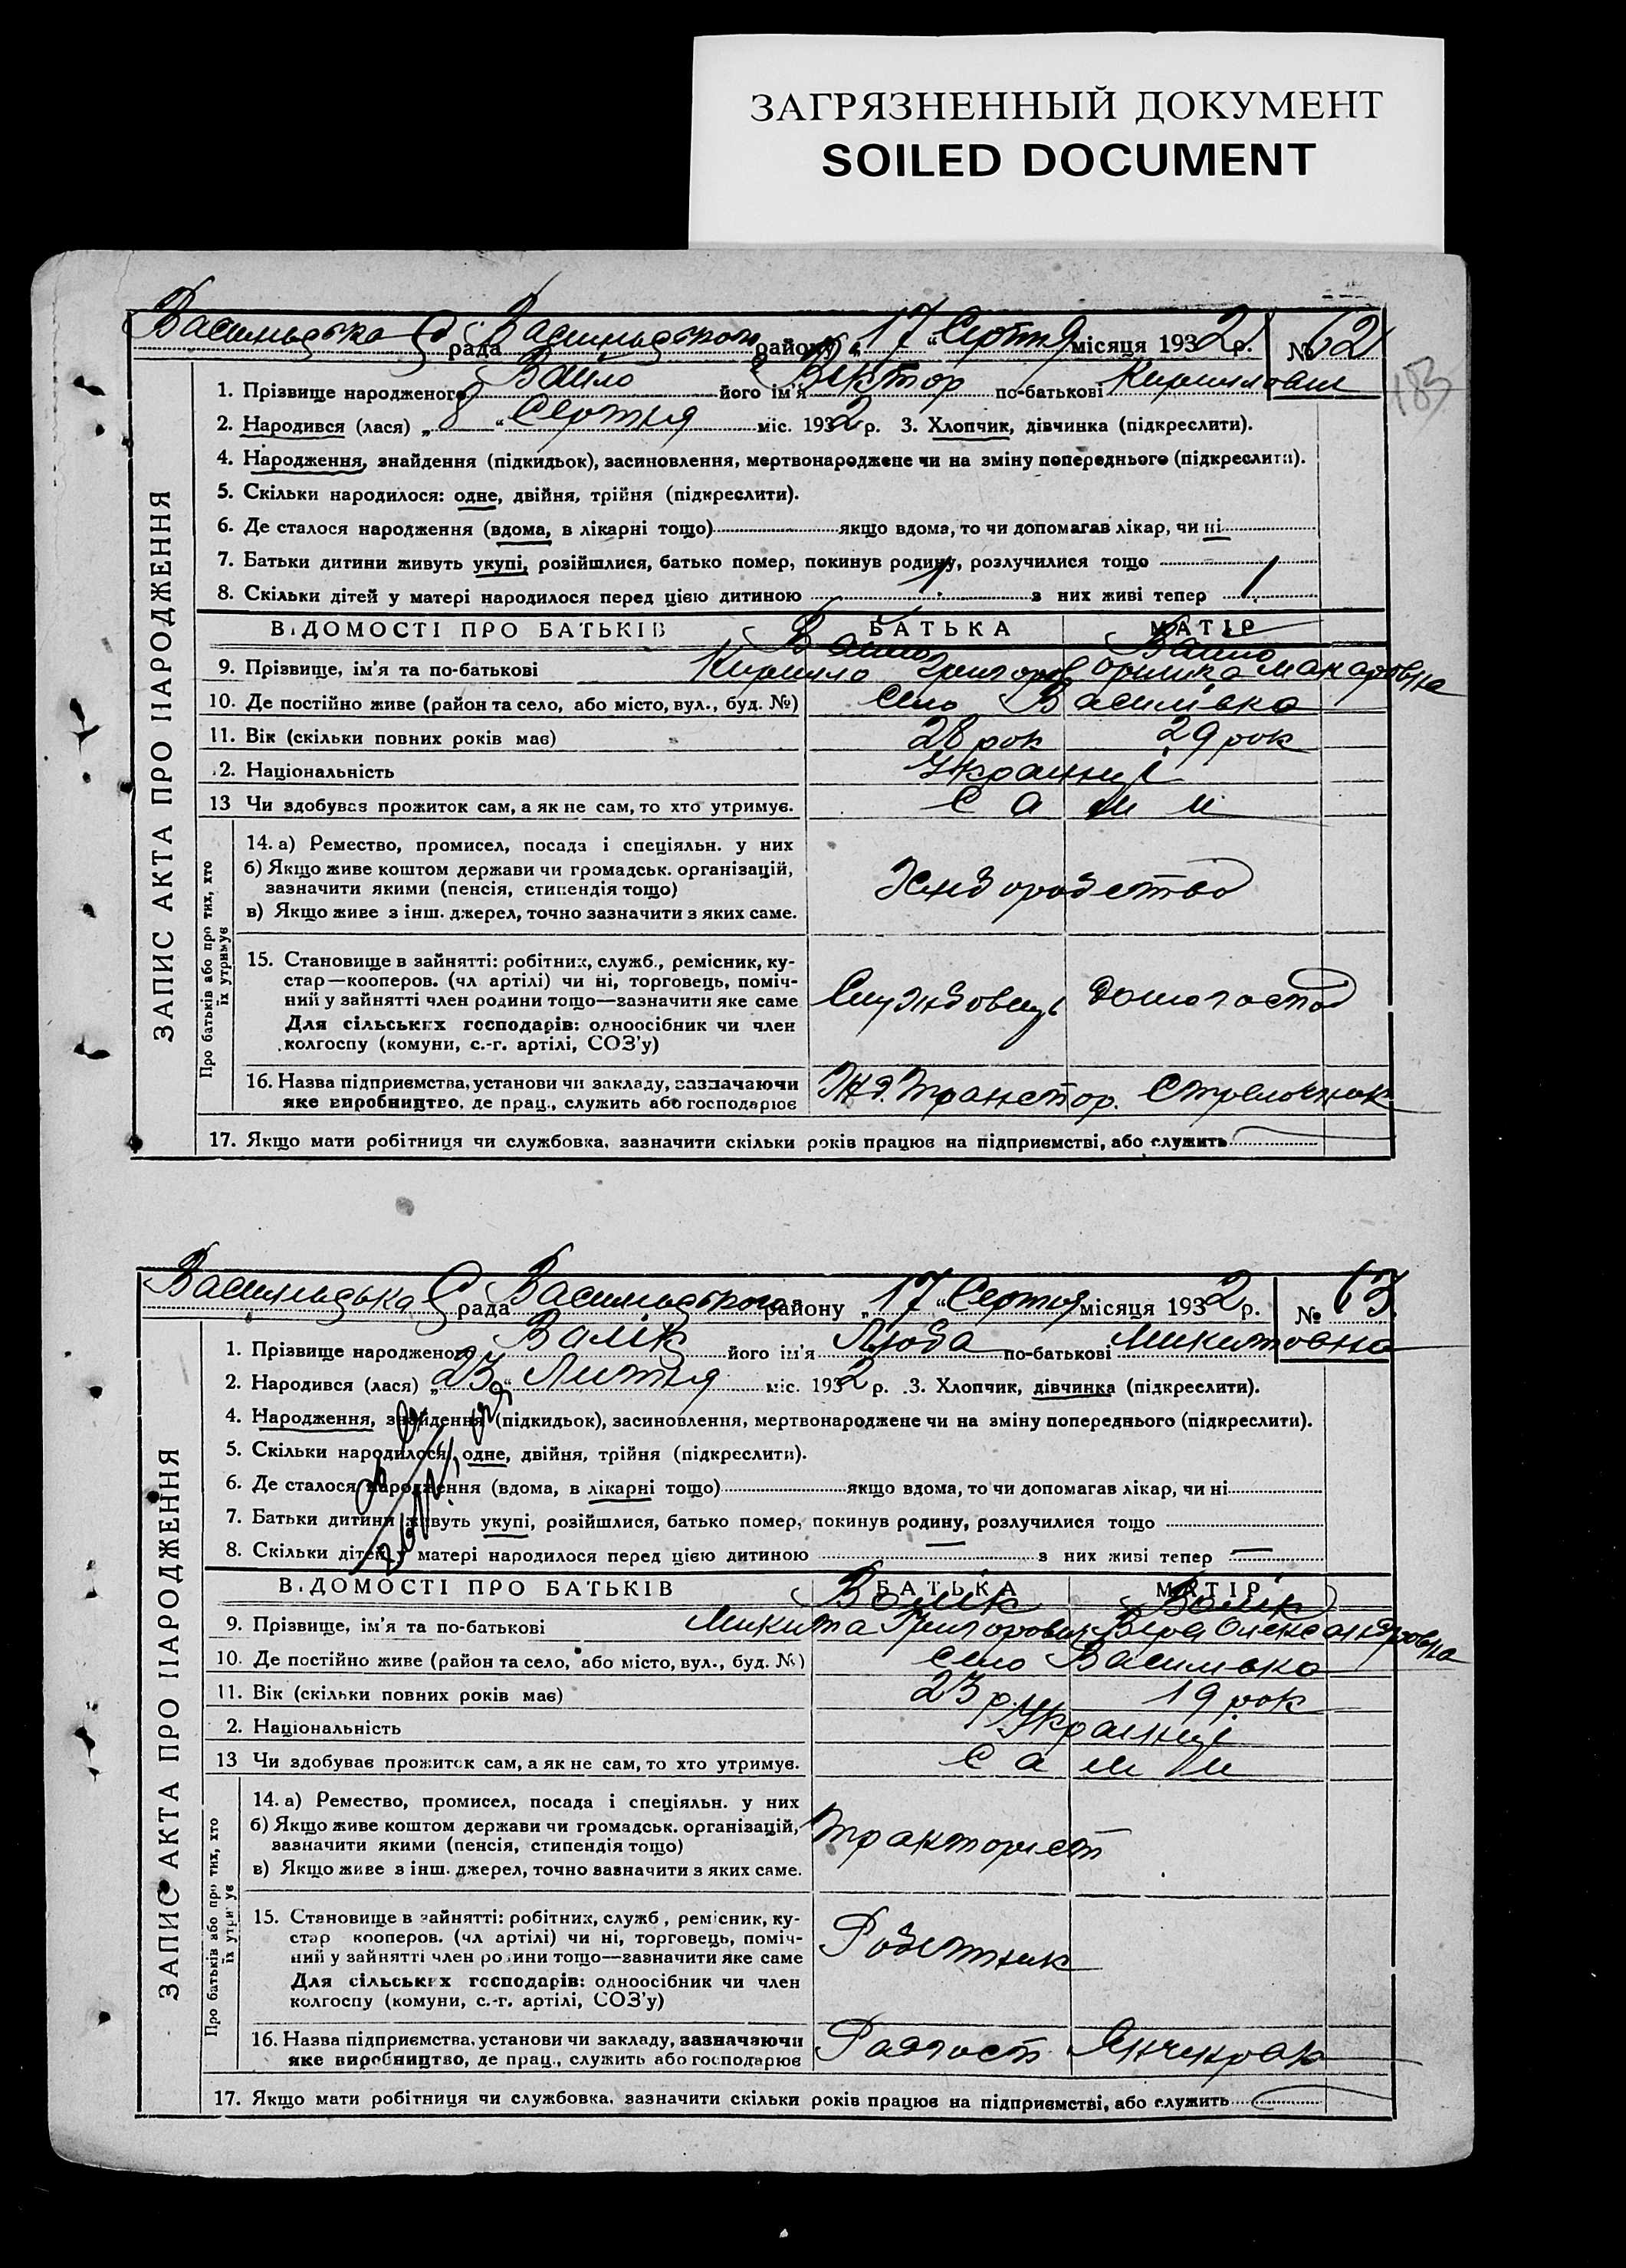 ЗАГРЯЗНЕННЫЙ ДОКУМЕНТ
SOILED DOCUMENT
рада району „17“ Серпня місяця 1932 р. № 62
183
ЗАПИС АКТА ПРО НАРОДЖЕННЯ
1. Прізвище народженого його ім'я Віктор по-батькові
2. Народився (лася) „8“ Серпня міс. 1932 р. 3. Хлопчик, дівчинка (підкреслити).
4. Народження, знайдення (підкидьок), засиновлення, мертвонароджене чи на зміну попереднього (підкреслити).
5. Скільки народилося: одне, двійня, трійня (підкреслити).
6. Де сталося народження (вдома, в лікарні тощо) якщо вдома, то чи допомагав лікар, чи ні
7. Батьки дитини живуть укупі, розійшлися, батько помер, покинув родину, розлучилися тощо
8. Скільки дітей у матері народилося перед цією дитиною 1 з них живі тепер 1
ВІДОМОСТІ ПРО БАТЬКІВ БАТЬКА МАТІР
9. Прізвище, ім'я та по-батькові Макаровна
10. Де постійно живе (район та село, або місто, вул., буд. №) Село Василівка
11. Вік (скільки повних років має) 28 рок 29 рок
12. Національність Українці
13 Чи здобував прожиток сам, а як не сам, то хто утримує. Сами
Про батьків або про тих, хто їх утримує
14. а) Ремество, промисел, посада і спеціяльн. у них
б) Якщо живе коштом держави чи громадськ. організацій,
зазначити якими (пенсія, стипендія тощо)
в) Якщо живе з інш. джерел, точно зазначити з яких саме.
15. Становище в зайнятті: робітник, служб., ремісник, ку-
стар—кооперов. (чл артілі) чи ні, торговець, поміч-
ний у зайнятті член родини тощо—зазначити яке саме
Для сільських господарів: одноосібник чи член
колгоспу (комуни, с.-г. артілі, СОЗ'у)
Службовець
16. Назва підприємства, установи чи закладу, зазначаючи
яке виробництво, де прац., служить або господарює
Стрелочник
17. Якщо мати робітниця чи службовка, зазначити скільки років працює на підприємстві, або служить
рада району „17“ Серпня місяця 1932 р. № 63.
ЗАПИС АКТА ПРО НАРОДЖЕННЯ
1. Прізвище народженого Валік його ім'я Люба по-батькові Микитовна
2. Народився (лася) „23“ Липня міс. 1932 р. 3. Хлопчик, дівчинка (підкреслити).
4. Народження, знайдення (підкидьок), засиновлення, мертвонароджене чи на зміну попереднього (підкреслити).
5. Скільки народилося: одне, двійня, трійня (підкреслити).
6. Де сталося народження (вдома, в лікарні тощо) якщо вдома, то чи допомагав лікар, чи ні
7. Батьки дитини живуть укупі, розійшлися, батько помер, покинув родину, розлучилися тощо
8. Скільки дітей у матері народилося перед цією дитиною — з них живі тепер —
ВІДОМОСТІ ПРО БАТЬКІВ БАТЬКА МАТІР
Валік Валік
9. Прізвище, ім'я та по-батькові Микита Григорович Вера Олександровна
10. Де постійно живе (район та село, або місто, вул., буд. №) Село Василівка
11. Вік (скільки повних років має) 23 р. 19 рок
2. Національність Українці
13 Чи здобував прожиток сам, а як не сам, то хто утримує. Сами
Про батьків або про тих, хто їх утримує
14. а) Ремество, промисел, посада і спеціяльн. у них
б) Якщо живе коштом держави чи громадськ. організацій,
зазначити якими (пенсія, стипендія тощо)
в) Якщо живе з інш. джерел, точно зазначити з яких саме.
Тракторист
15. Становище в зайнятті: робітник, служб, ремісник, ку-
стар кооперов. (чл артілі) чи ні, торговець, поміч-
ний у зайнятті член родини тощо—зазначити яке саме
Для сільських господарів: одноосібник чи член
колгоспу (комуни, с.-г. артілі, СОЗ'у)
Робітник
16. Назва підприємства, установи чи закладу, зазначаючи
яке виробництво, де прац., служить або господарює
Радгосп Янчекрак
17. Якщо мати робітниця чи службовка, зазначити скільки років працює на підприємстві, або служить